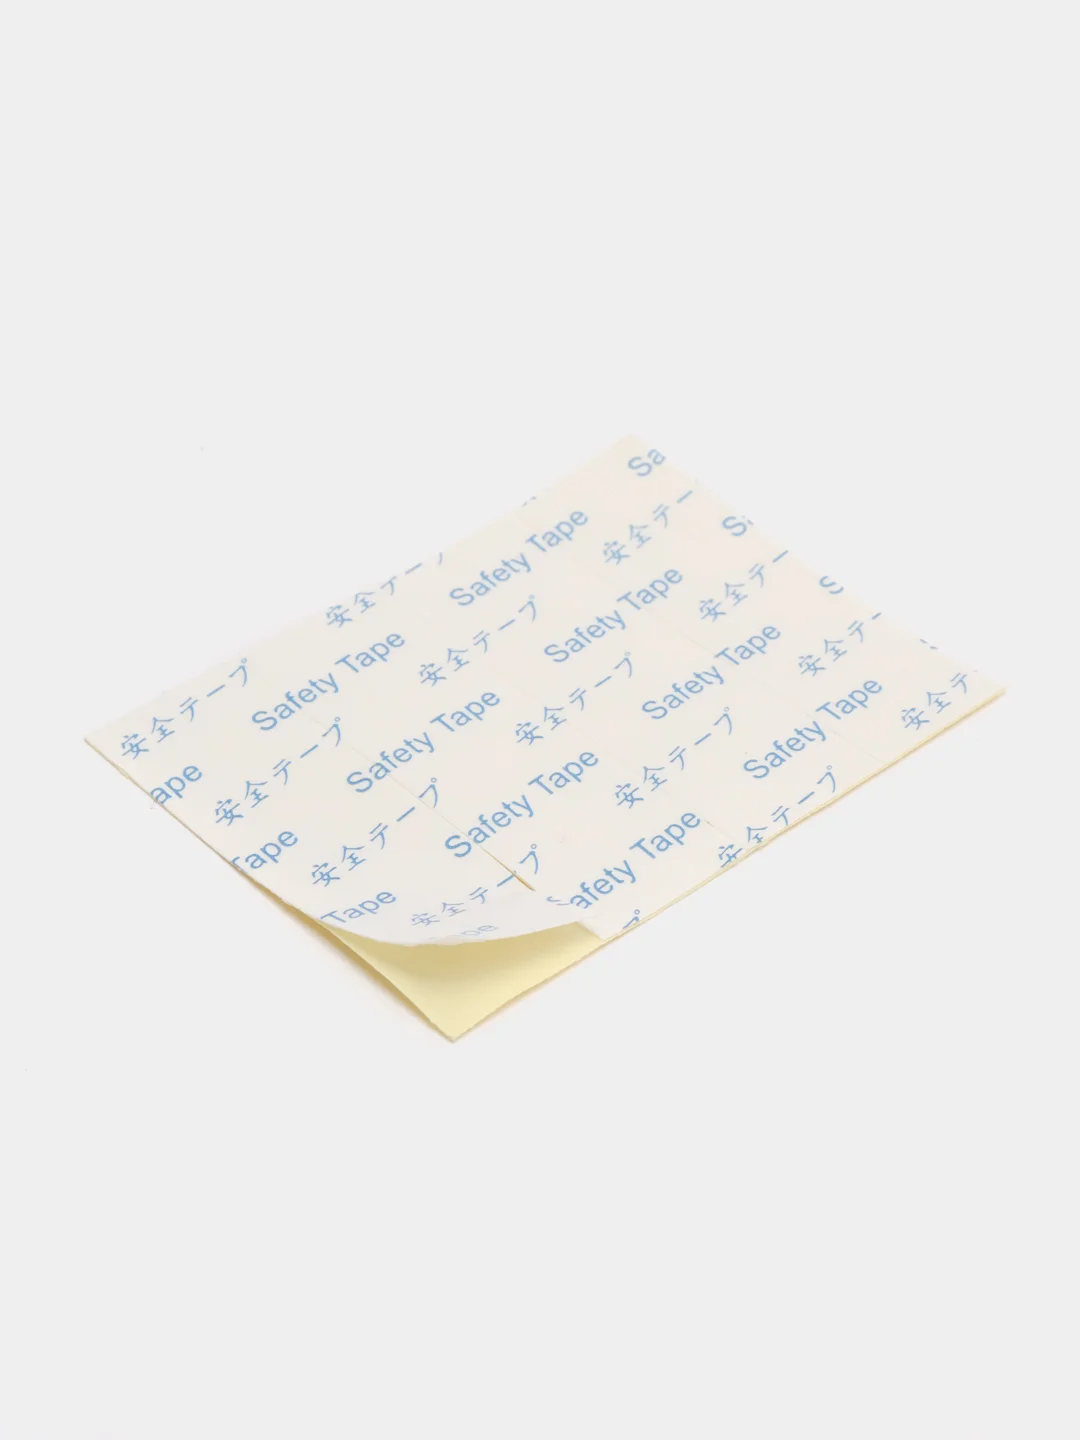 Sa
安全テー
Safety Tape
安全テー
Safety Tape
安全テープ
安全テー
Safety Tape
安全テープ
Safety Tape
安全テー
Safety Tape
安全テープ
Safety Tape
安全テープ
安全テ
Safety Tape
安全テープ
Safety Tape
安全テープ
ape
安全テープ
Safety Tape
安全テープ
Tape
安全テープ
afety Tape
Tape